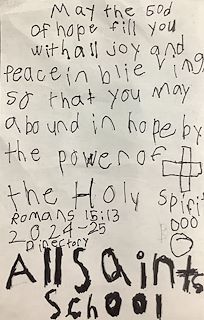 May the God
of hope fill you
with all joy and
peace in blieving
so that you may
abound in hope by
the power of
the Holy Spirit
Romans 15:13
2024-25
Directory
All Saints
School